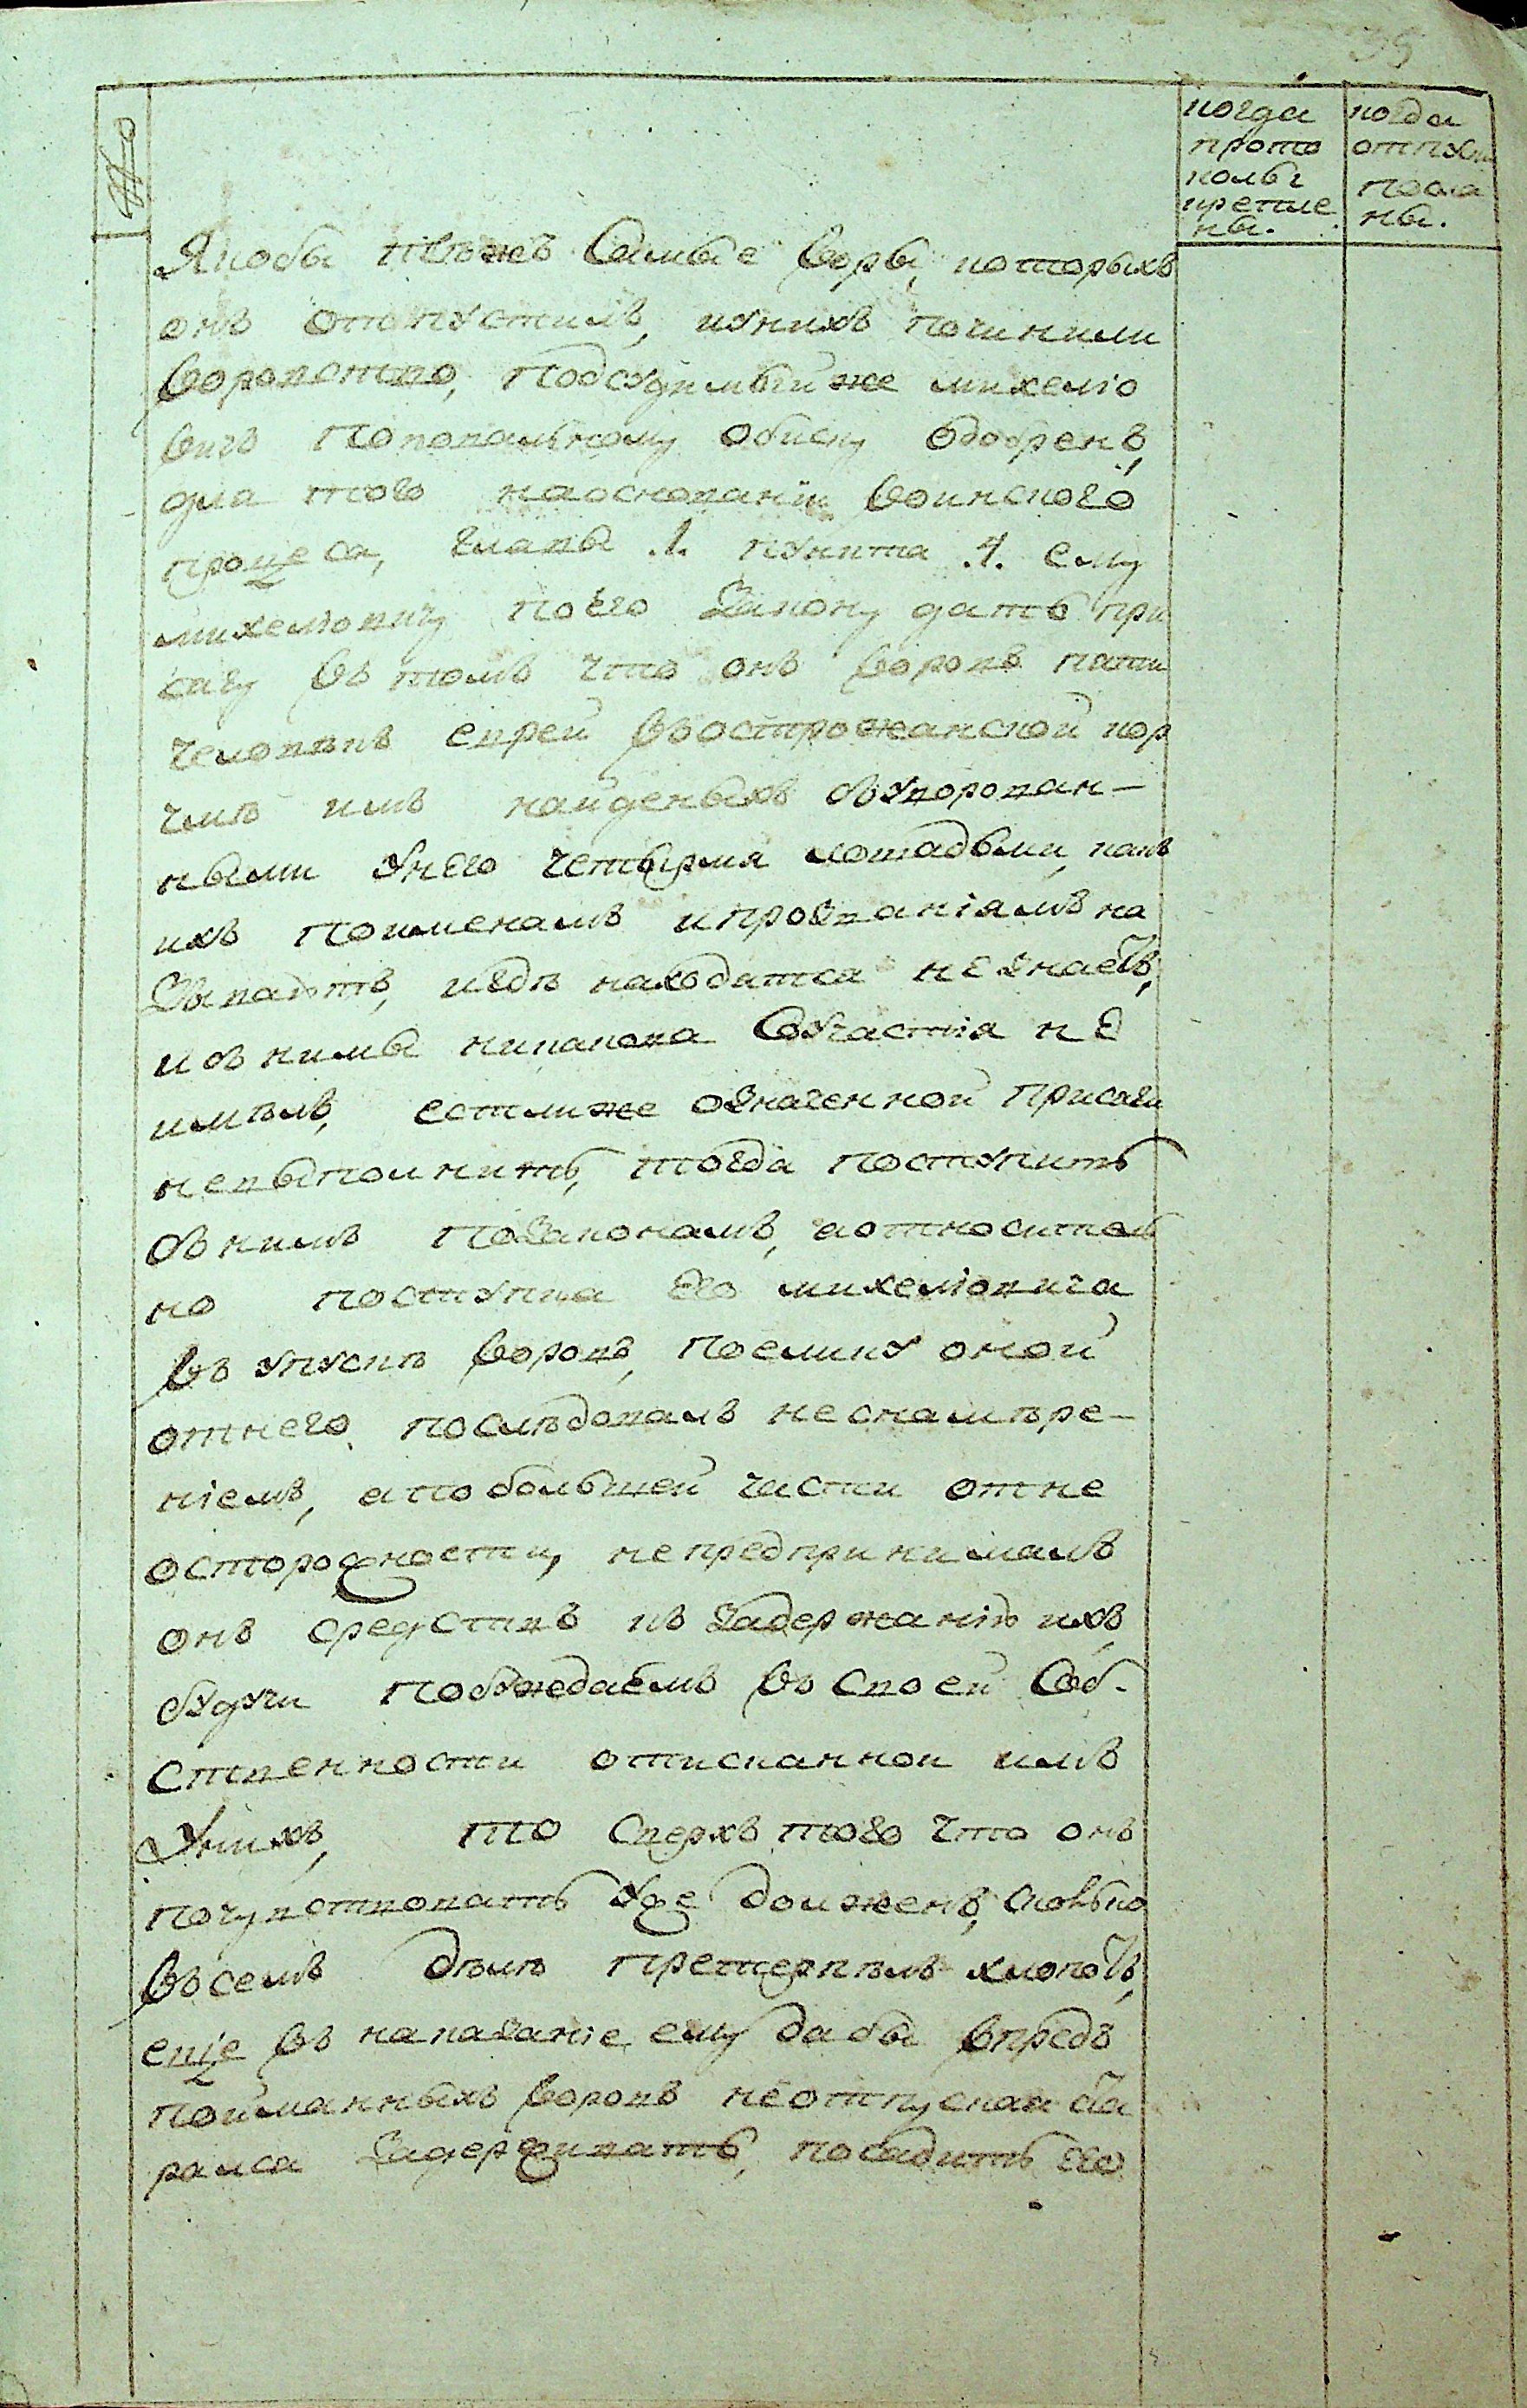 35
№
когда
прото
колы
крепле
ны.
когда
отпуски
посла
ны.
Якобы тѣжъ Самые Воры, которыхъ
онъ отпустилъ, уникъ починили
Воровство, Подсудимый же михелıо
вичъ Поповальному обиску Одобренъ,
для того наоснованіи Воинского
процеса, главы .1. пункта .4. ему
михеліовичу поего Закону дать при
сягу Въ томъ что онъ Воровъ пяти
человѣкъ евреи Въостроженской кор
чмѣ имъ найденыхъ съуворован–
ными Унего четырмя лошадьми, какъ
ихъ Поименамъ ипрозваніямъ на
Зываютъ, игдѣ находится незнаетъ,
исъ нимы никакова Соучастія не
имѣлъ, естлиже означенной Присяги
невыполнитъ, тогда поступить
съ нимъ Позаконамъ, аотноситель
но поступка его михеліовича
Въ упускѣ Воровъ, поелику оной
отнего послѣдовалъ неснамѣре–
ніемъ, апо большей части отне
осторожности, непредпринималъ
онъ средствъ къ Задержанію ихъ,
будучи Побуждаемъ Въ своей Соб-
ственности отисканной имъ
Унихъ, то сверхъ того что онъ
почувствовать Уже долженъ, сколько
Въсемъ дѣлѣ претерпѣлъ хлопотъ,
еще Въ наказаніе ему дабы впредъ
пойманныхъ Воровъ неотпускал ста
рался Задерживать, посадить его